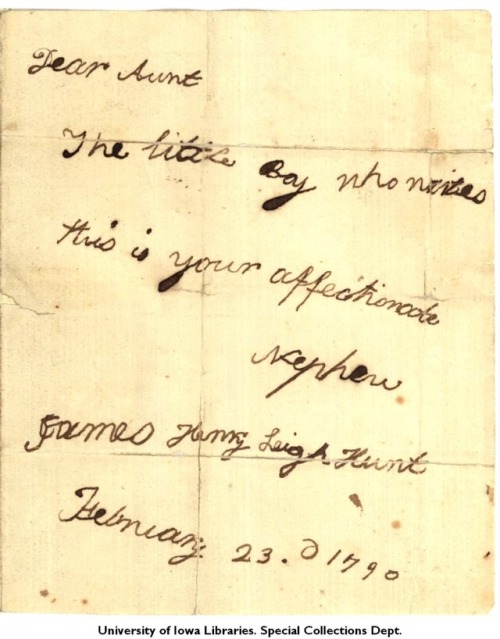 Dear Aunt
The little Boy who writes
this is your affectionate
Nephew
James Henry Leigh Hunt
February 23.d 1790
University of Iowa Libraries. Special Collections Dept.